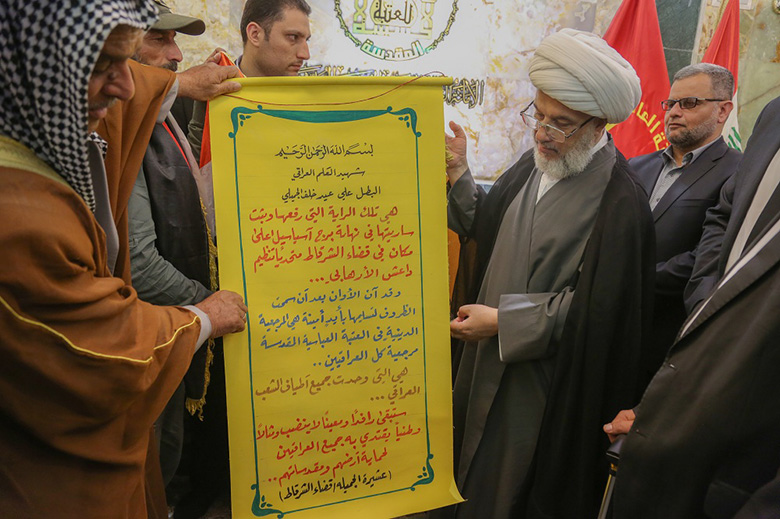 العتبة
المقدسة
بسم الله الرحمن الرحيم
شهيد العلم العراقي
البطل علي عيد خلف الجميلي
هي تلك الراية التي رفعها وثبت
ساريتها في نهاية برج آسياسيل اعلى
مكان في قضاء الشرقاط متحدياً تنظيم
داعش الأرهابي ...
وقد آن الأوان بعد أن سمحت
الظروف لتسليمها بأيدٍ أمينة هي المرجعية
الدينية في العتبة العباسية المقدسة
مرجعية كل العراقيين ..
هي التي وحدت جميع أطياف الشعب
العراقي ...
ستبقى رافداً ومعيناً لا ينضب ومثالاً
وطنياً يقتدي به جميع العراقيين
لحماية أرضهم ومقدساتهم ..
(عشيرة الجميله / قضاء الشرقاط)